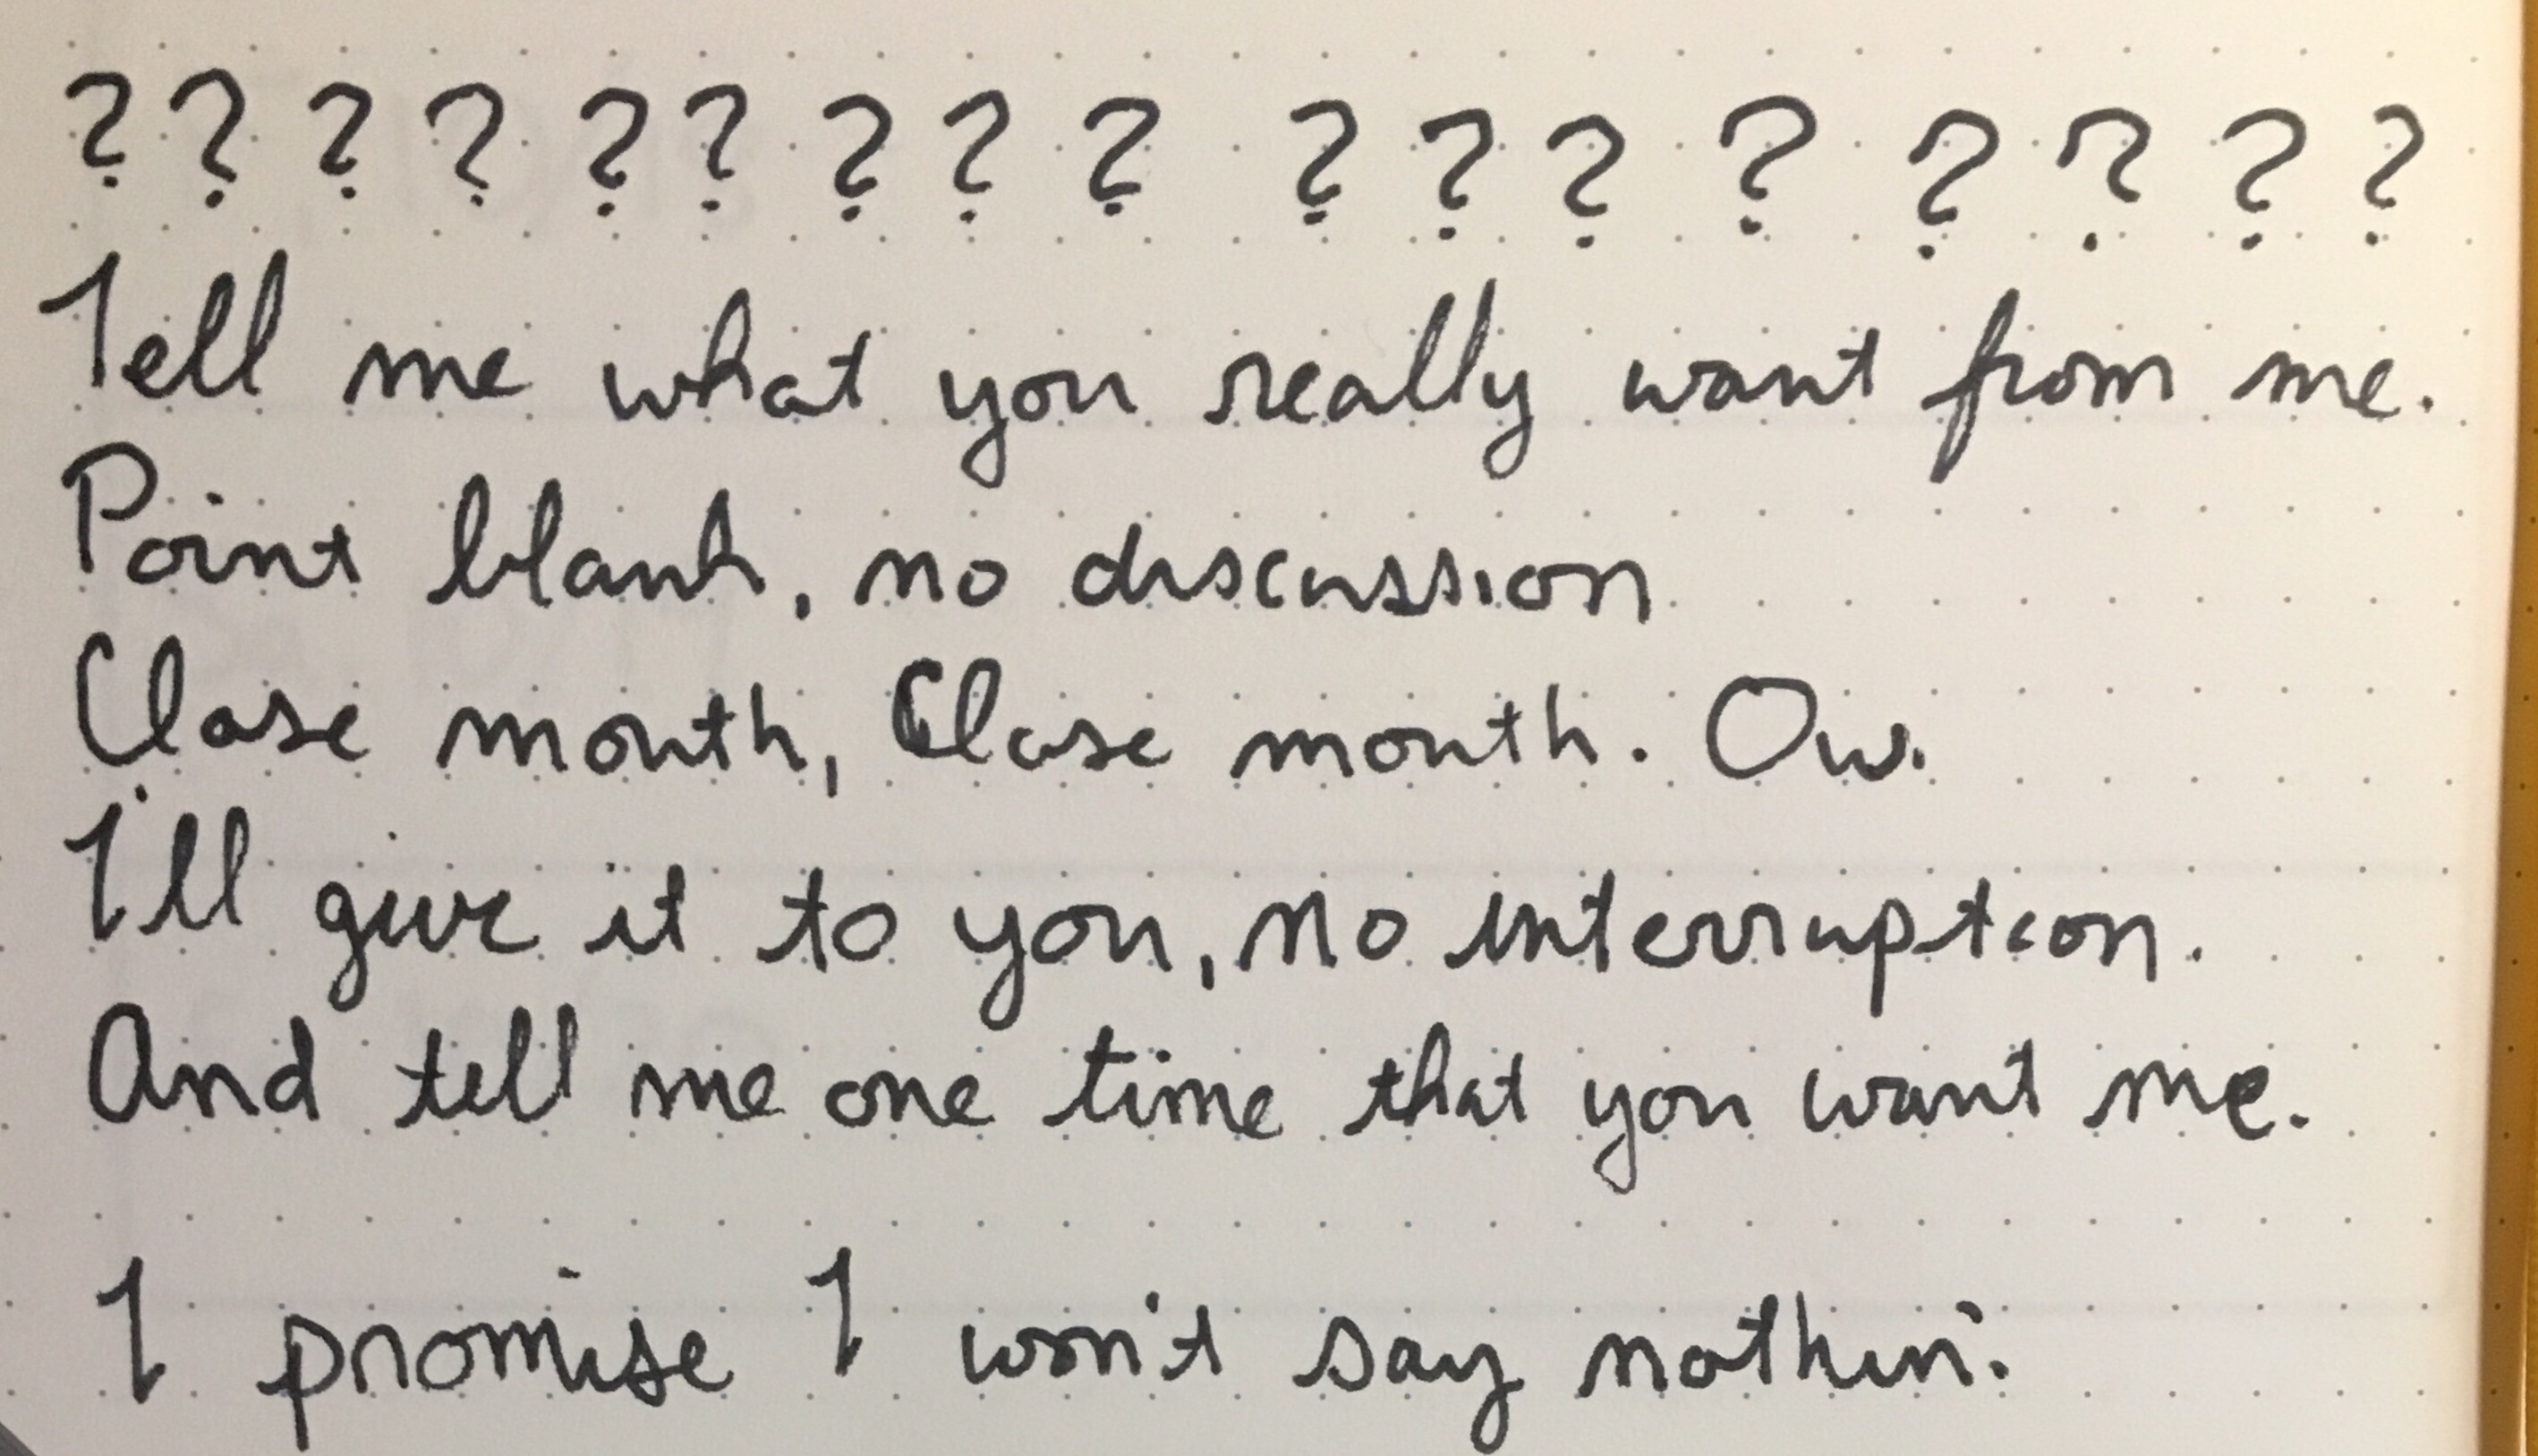 ? ? ? ? ? ? ? ? ? ? ? ? ? ? ? ? ?
Tell me what you really want from me.
Point blank, no discussion
Close mouth, Close mouth. Ow.
I'll give it to you, no interruption.
And tell me one time that you want me.
I promise I won't say nothin'.